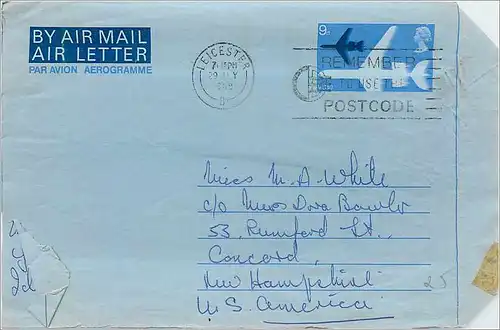 BY AIR MAIL
AIR LETTER
PAR AVION AÉROGRAMME
9d
LEICESTER
REMEMBER
TO USE THE
POSTCODE
Miss M. A. White
c/o Miss Dora Bowler
53, Rumford St.,
Concord,
New Hampshire
U.S. America
25